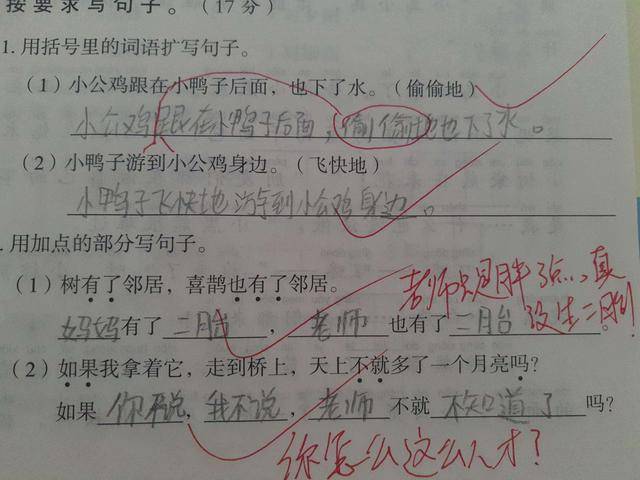 按要求写句子。(17分)
1. 用括号里的词语扩写句子。
(1)小公鸡跟在小鸭子后面,也下了水。(偷偷地)
小公鸡跟在小鸭子后面,偷偷地也下了水。
(2)小鸭子游到小公鸡身边。(飞快地)
小鸭子飞快地游到小公鸡身边。
. 用加点的部分写句子。
(1)树有了邻居,喜鹊也有了邻居。
老师只是胖了点,真
没生二胎
妈妈有了二月台,老师也有了二月台
(2)如果我拿着它,走到桥上,天上不就多了一个月亮吗?
如果你不说,我不说,老师不就不知道了吗?
你怎么这么人才?